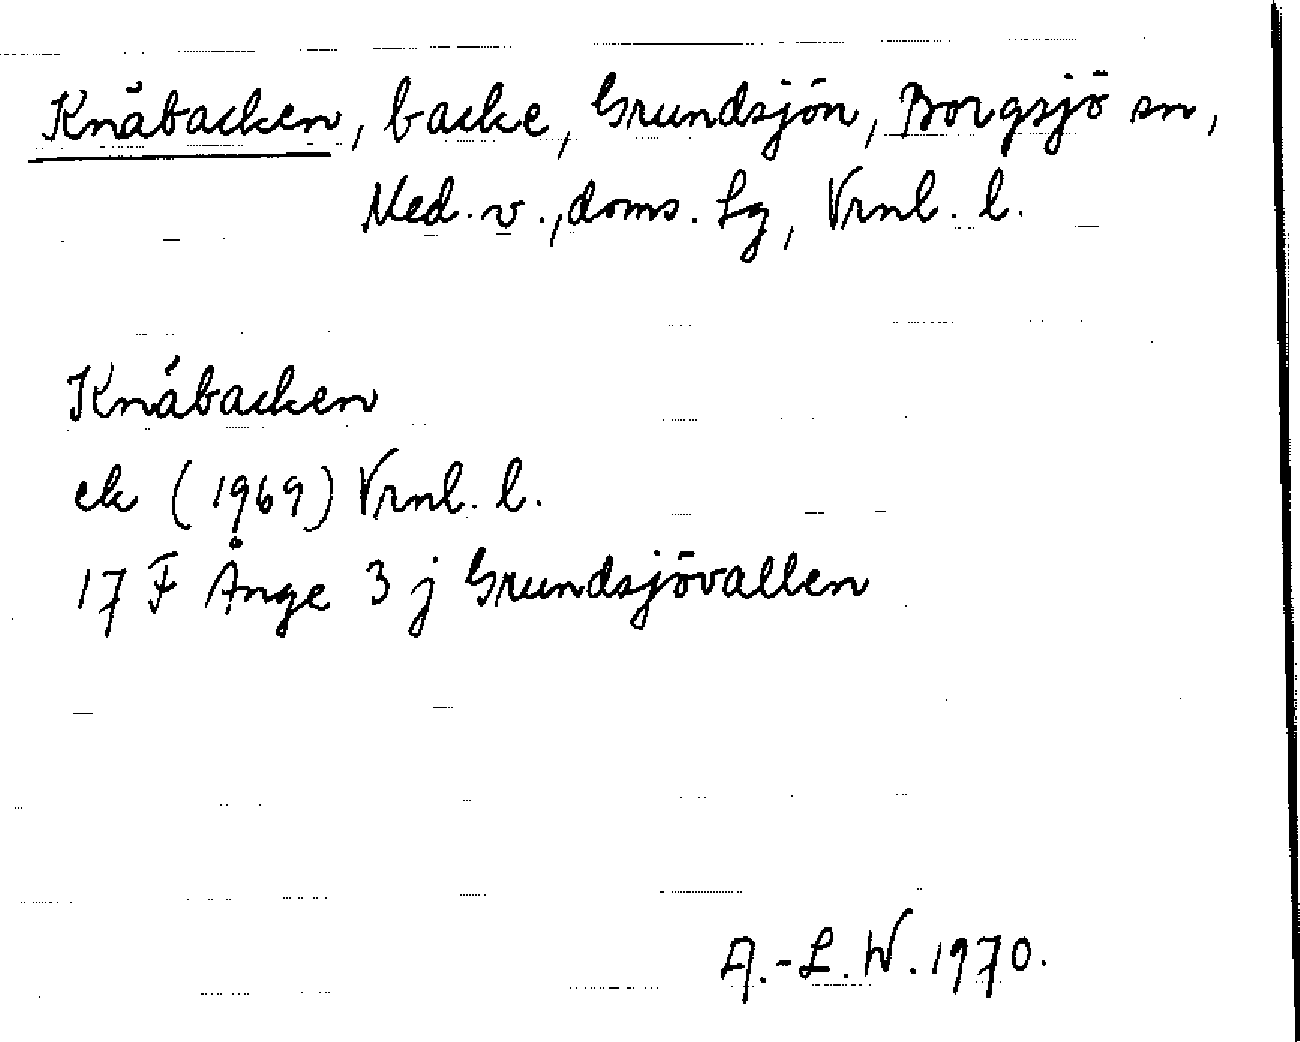 Knäbacken, backe, Grundsjön, Borgsjö sn,
Med. v., doms. Lg, Vrnl. l.
Knäbacken
ek (1969) Vrnl. l.
17 F Ånge 3 j Grundsjövallen
A.-L. W. 1970.